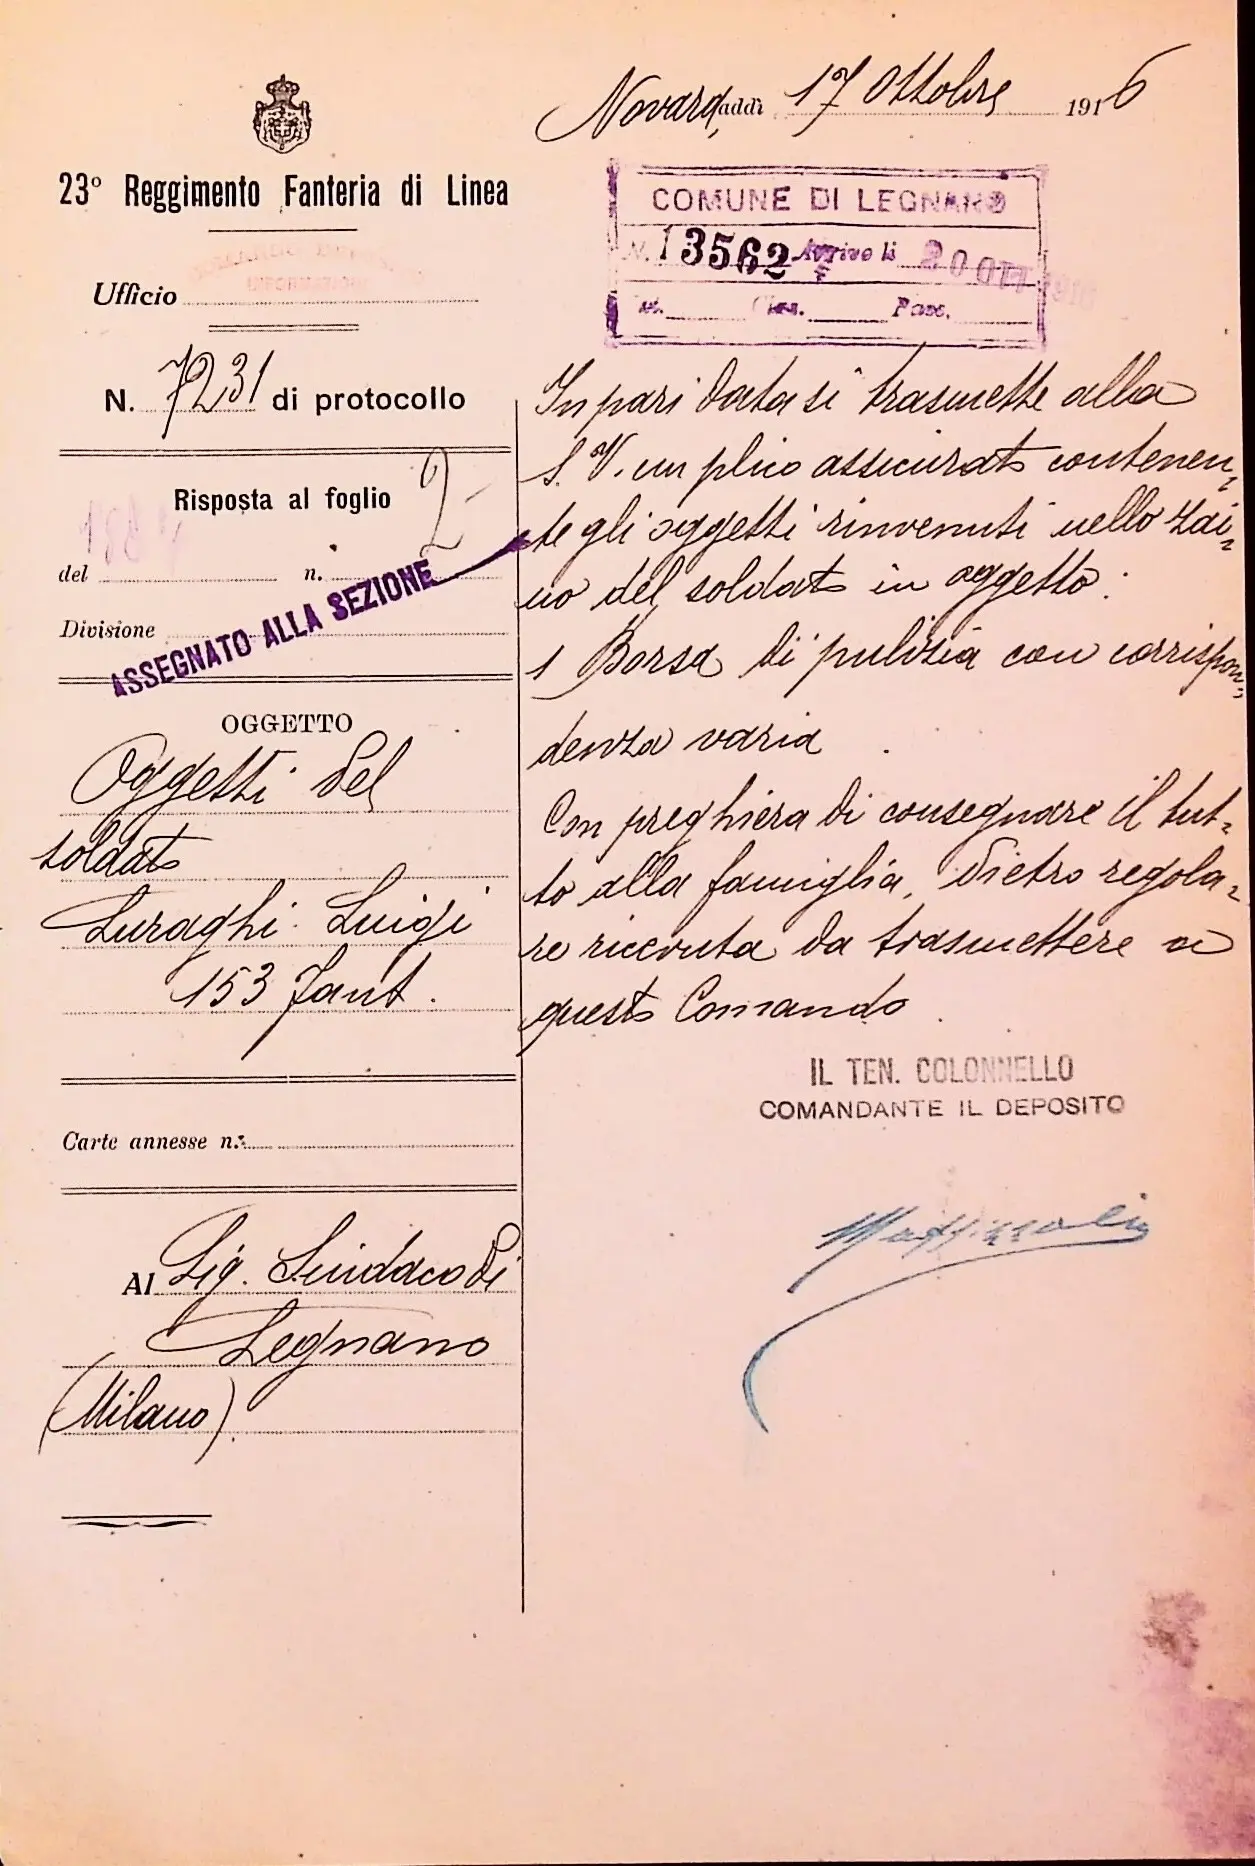 Novara, addì 17 Ottobre 1916
23º Reggimento Fanteria di Linea
COMUNE DI LEGNANO
N. 13562 Arrivo li 20 OTT 1916
Cat. Clas. Fasc.
Ufficio
N. 7231 di protocollo
Risposta al foglio 2
del n.
Divisione
ASSEGNATO ALLA SEZIONE
OGGETTO
Oggetti del
soldato
Luraghi Luigi
153 Fant.
Carte annesse n.
Al Sig. Sindaco di
Legnano
(Milano)
In pari data si trasmette alla
S. V. un plico assicurato contenen-
te gli oggetti rinvenuti nello zai-
no del soldato in oggetto:
1 Borsa di pulizia con corrispon-
denza varia
Con preghiera di consegnare il tut-
to alla famiglia, dietro regola-
re ricevuta da trasmettere a
questo Comando
IL TEN. COLONNELLO
COMANDANTE IL DEPOSITO